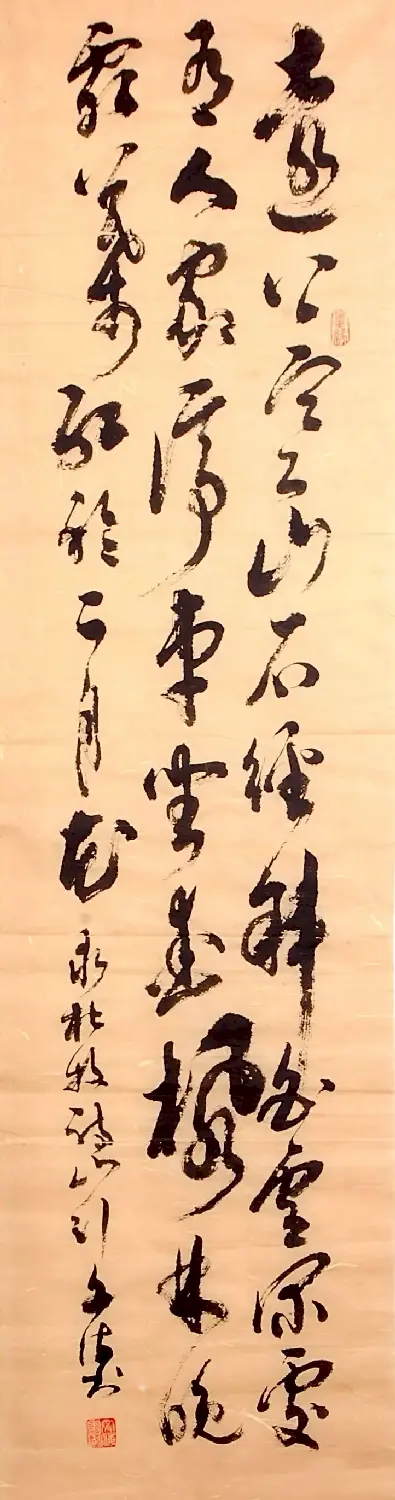 遠上寒山石徑斜白雲深處
有人家停車坐愛楓林晚
霜葉紅於二月花 录杜牧詩山行